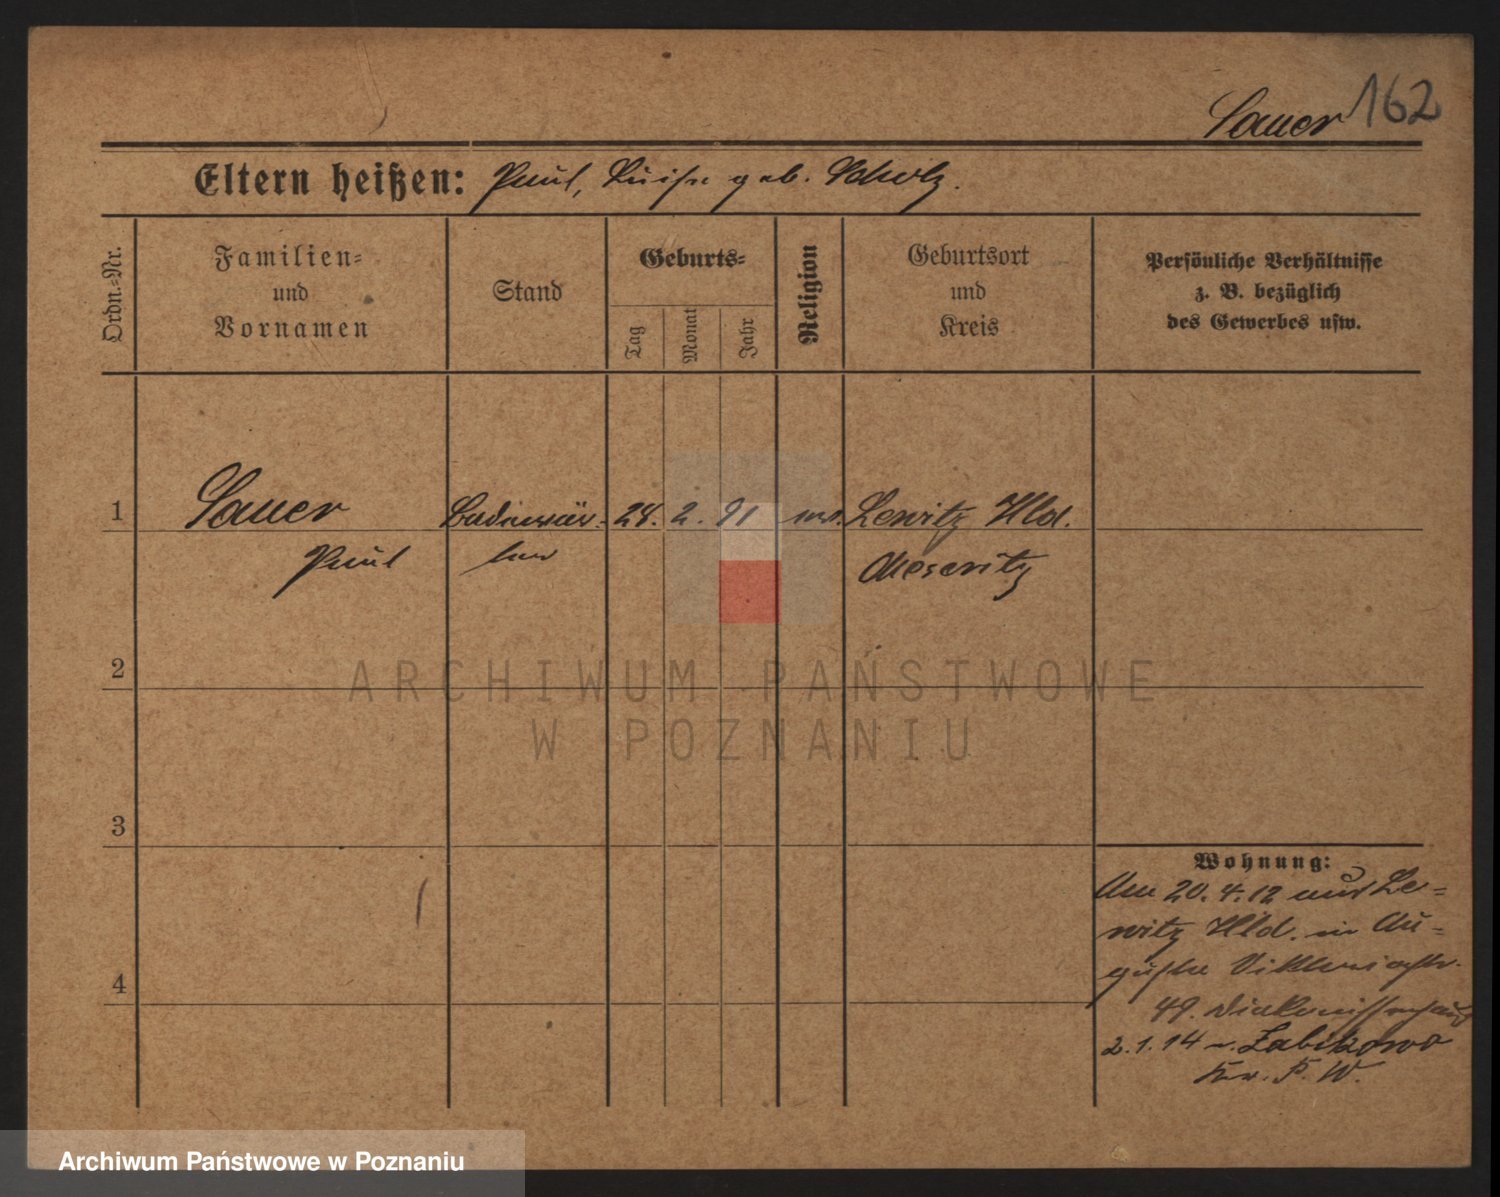 Sauer 162
Eltern heißen: Paul, Luise geb. Scholz.
Ordn.-Nr.
Familien-
und
Vornamen
Stand
Geburts-
Tag
Monat
Jahr
Religion
Geburtsort
und
Kreis
Persönliche Verhältnisse
z. B. bezüglich
des Gewerbes usw.
1 Sauer Badewär- 28. 2. 91 Lewitz Hld.
Paul ter Meseritz
2
3
4
Wohnung:
Am 20.4.12 aus Le-
witz Hld. in Au-
guste Viktoriastr.
49. Diakonissenhaus
2.1.14 n. Zabikowo
Kr. P. W.
ARCHIWUM PAŃSTWOWE
W POZNANIU
Archiwum Państwowe w Poznaniu